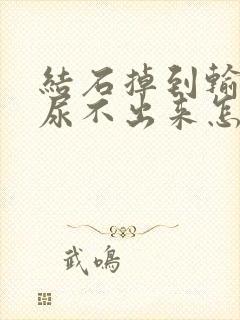 結石掉到輸
尿不出来怎
武鳴